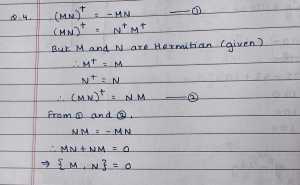 Q.4. (MN)† = -MN —— ①
(MN)† = N†M†
But M and N are Hermitian (given)
∴ M† = M
N† = N
∴ (MN)† = NM —— ②
From ① and ②,
NM = -MN
∴ MN + NM = 0
⇒ {M, N} = 0